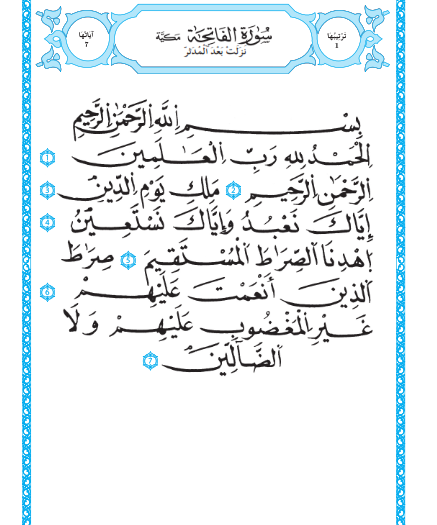 ترتيبها
1
سُورَةُ الفَاتِحَةِ مَكيَّة
نزلت بعد المدثر
آياتها
7
بِسْمِ اللَّهِ الرَّحْمَٰنِ الرَّحِيمِ
الْحَمْدُ لِلهِ رَبِّ الْعَٰلَمِينَ ١
الرَّحْمَٰنِ الرَّحِيمِ ٢ مَلِكِ يَوْمِ الدِّينِ ٣
إِيَّاكَ نَعْبُدُ وَإِيَّاكَ نَسْتَعِينُ ٤
اهْدِنَا الصِّرَاطَ الْمُسْتَقِيمَ ٥ صِرَاطَ
الذِينَ أَنْعَمْتَ عَلَيْهِمْ ٦
غَيْرِ الْمَغْضُوبِ عَلَيْهِمْ وَلَا
الضَّآلِّينَ ٧